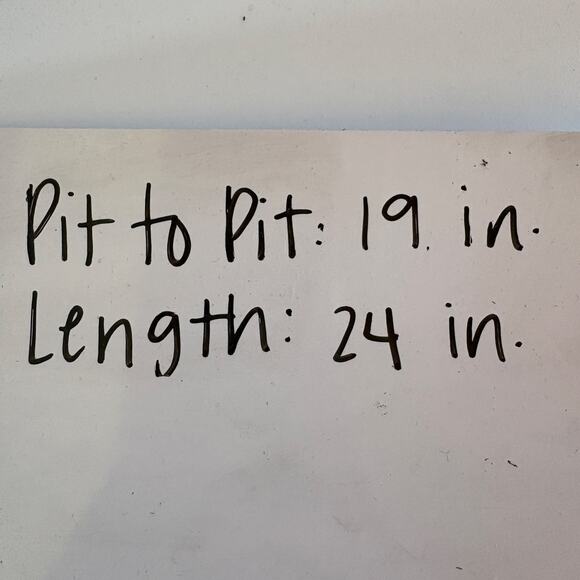 Pit to Pit: 19 in.
Length: 24 in.